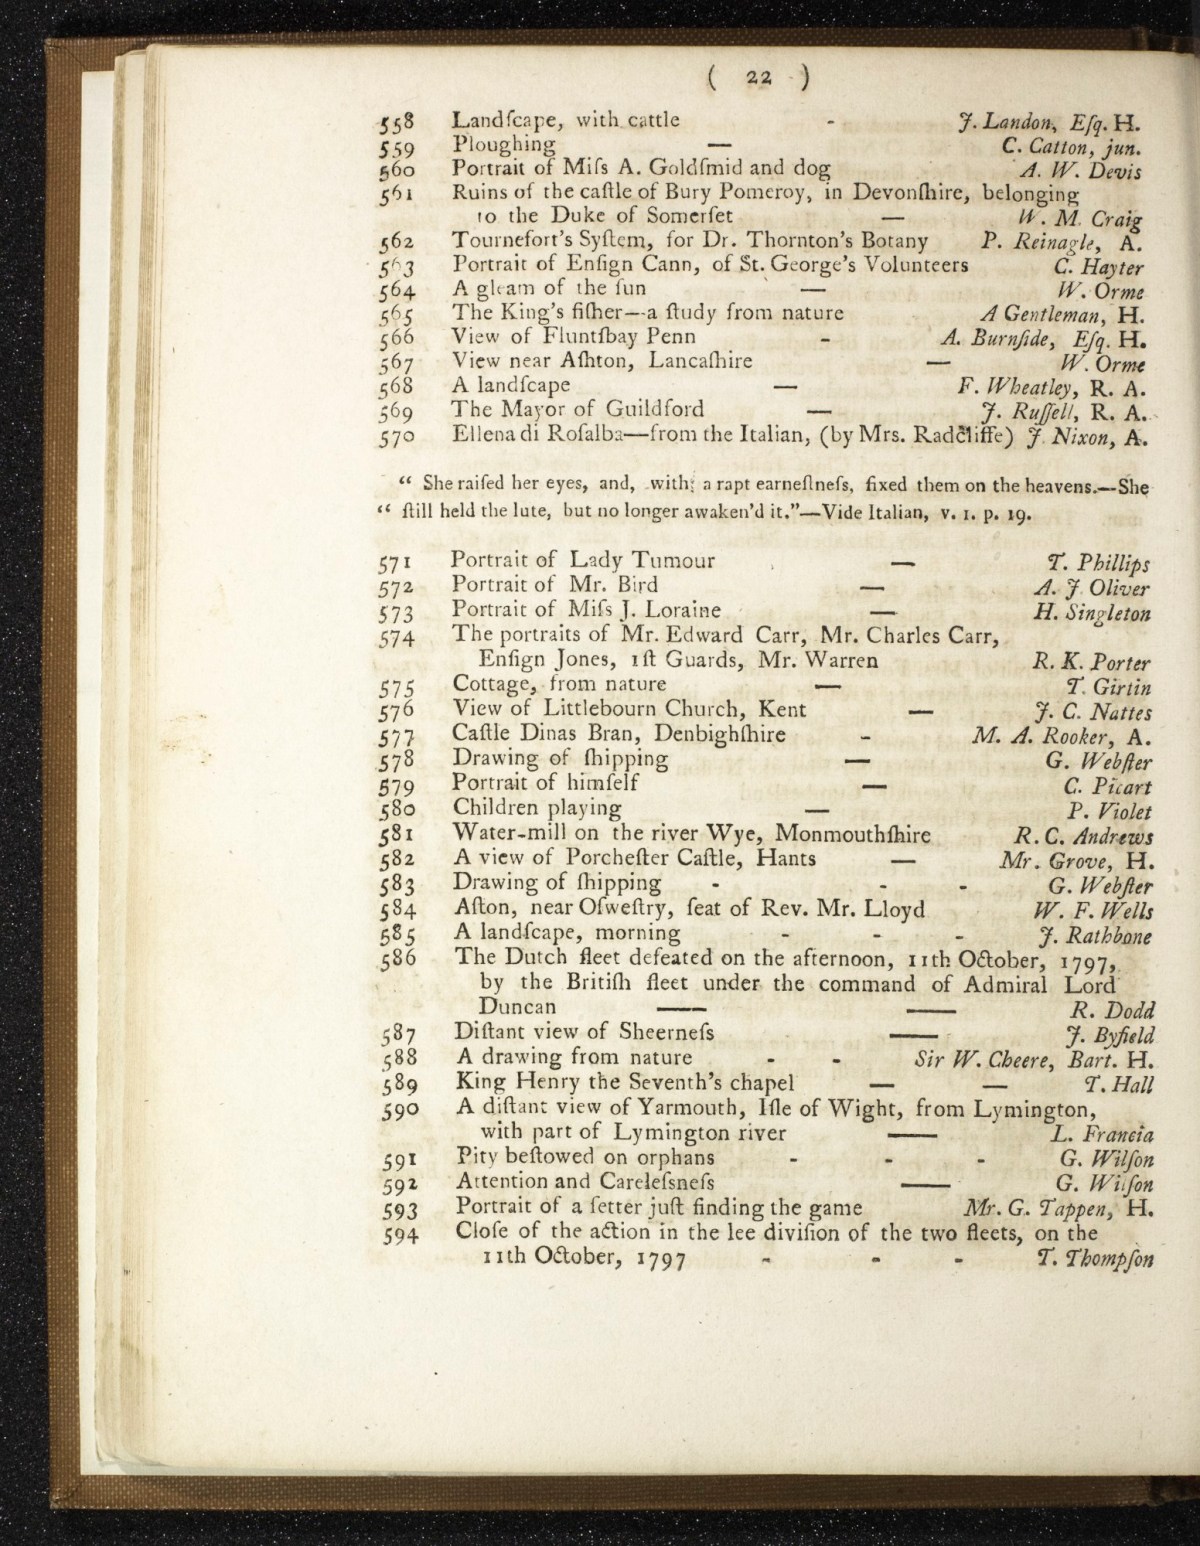 ( 22 )
558 Landſcape, with cattle - J. Landon, Eſq. H.
559 Ploughing — C. Catton, jun.
560 Portrait of Miſs A. Goldſmid and dog A. W. Devis
561 Ruins of the caſtle of Bury Pomeroy, in Devonſhire, belonging
to the Duke of Somerſet — W. M. Craig
562 Tournefort's Syſtem, for Dr. Thornton's Botany P. Reinagle, A.
563 Portrait of Enſign Cann, of St. George's Volunteers C. Hayter
564 A gleam of the ſun — W. Orme
565 The King's fiſher—a ſtudy from nature A Gentleman, H.
566 View of Fluntſbay Penn - A. Burnſide, Eſq. H.
567 View near Aſhton, Lancaſhire — W. Orme
568 A landſcape — F. Wheatley, R. A.
569 The Mayor of Guildford — J. Ruſſell, R. A.
570 Ellena di Roſalba—from the Italian, (by Mrs. Radcliffe) J. Nixon, A.
“ She raiſed her eyes, and, with a rapt earneſtneſs, fixed them on the heavens.—She
“ ſtill held the lute, but no longer awaken'd it.”—Vide Italian, v. 1. p. 19.
571 Portrait of Lady Tumour — T. Phillips
572 Portrait of Mr. Bird — A. J. Oliver
573 Portrait of Miſs J. Loraine — H. Singleton
574 The portraits of Mr. Edward Carr, Mr. Charles Carr,
Enſign Jones, 1ſt Guards, Mr. Warren R. K. Porter
575 Cottage, from nature — T. Girtin
576 View of Littlebourn Church, Kent — J. C. Nattes
577 Caſtle Dinas Bran, Denbighſhire - M. A. Rooker, A.
578 Drawing of ſhipping — G. Webſter
579 Portrait of himſelf — C. Picart
580 Children playing — P. Violet
581 Water-mill on the river Wye, Monmouthſhire R. C. Andrews
582 A view of Porcheſter Caſtle, Hants — Mr. Grove, H.
583 Drawing of ſhipping - - - G. Webſter
584 Aſton, near Oſweſtry, ſeat of Rev. Mr. Lloyd W. F. Wells
585 A landſcape, morning - - - J. Rathbone
586 The Dutch fleet defeated on the afternoon, 11th October, 1797,
by the Britiſh fleet under the command of Admiral Lord
Duncan — — R. Dodd
587 Diſtant view of Sheerneſs — J. Byfield
588 A drawing from nature - - Sir W. Cheere, Bart. H.
589 King Henry the Seventh's chapel — — T. Hall
590 A diſtant view of Yarmouth, Iſle of Wight, from Lymington,
with part of Lymington river — L. Francia
591 Pity beſtowed on orphans - - - G. Wilſon
592 Attention and Careleſsneſs — G. Wilſon
593 Portrait of a ſetter juſt finding the game Mr. G. Tappen, H.
594 Cloſe of the action in the lee diviſion of the two fleets, on the
11th October, 1797 - - - T. Thompſon